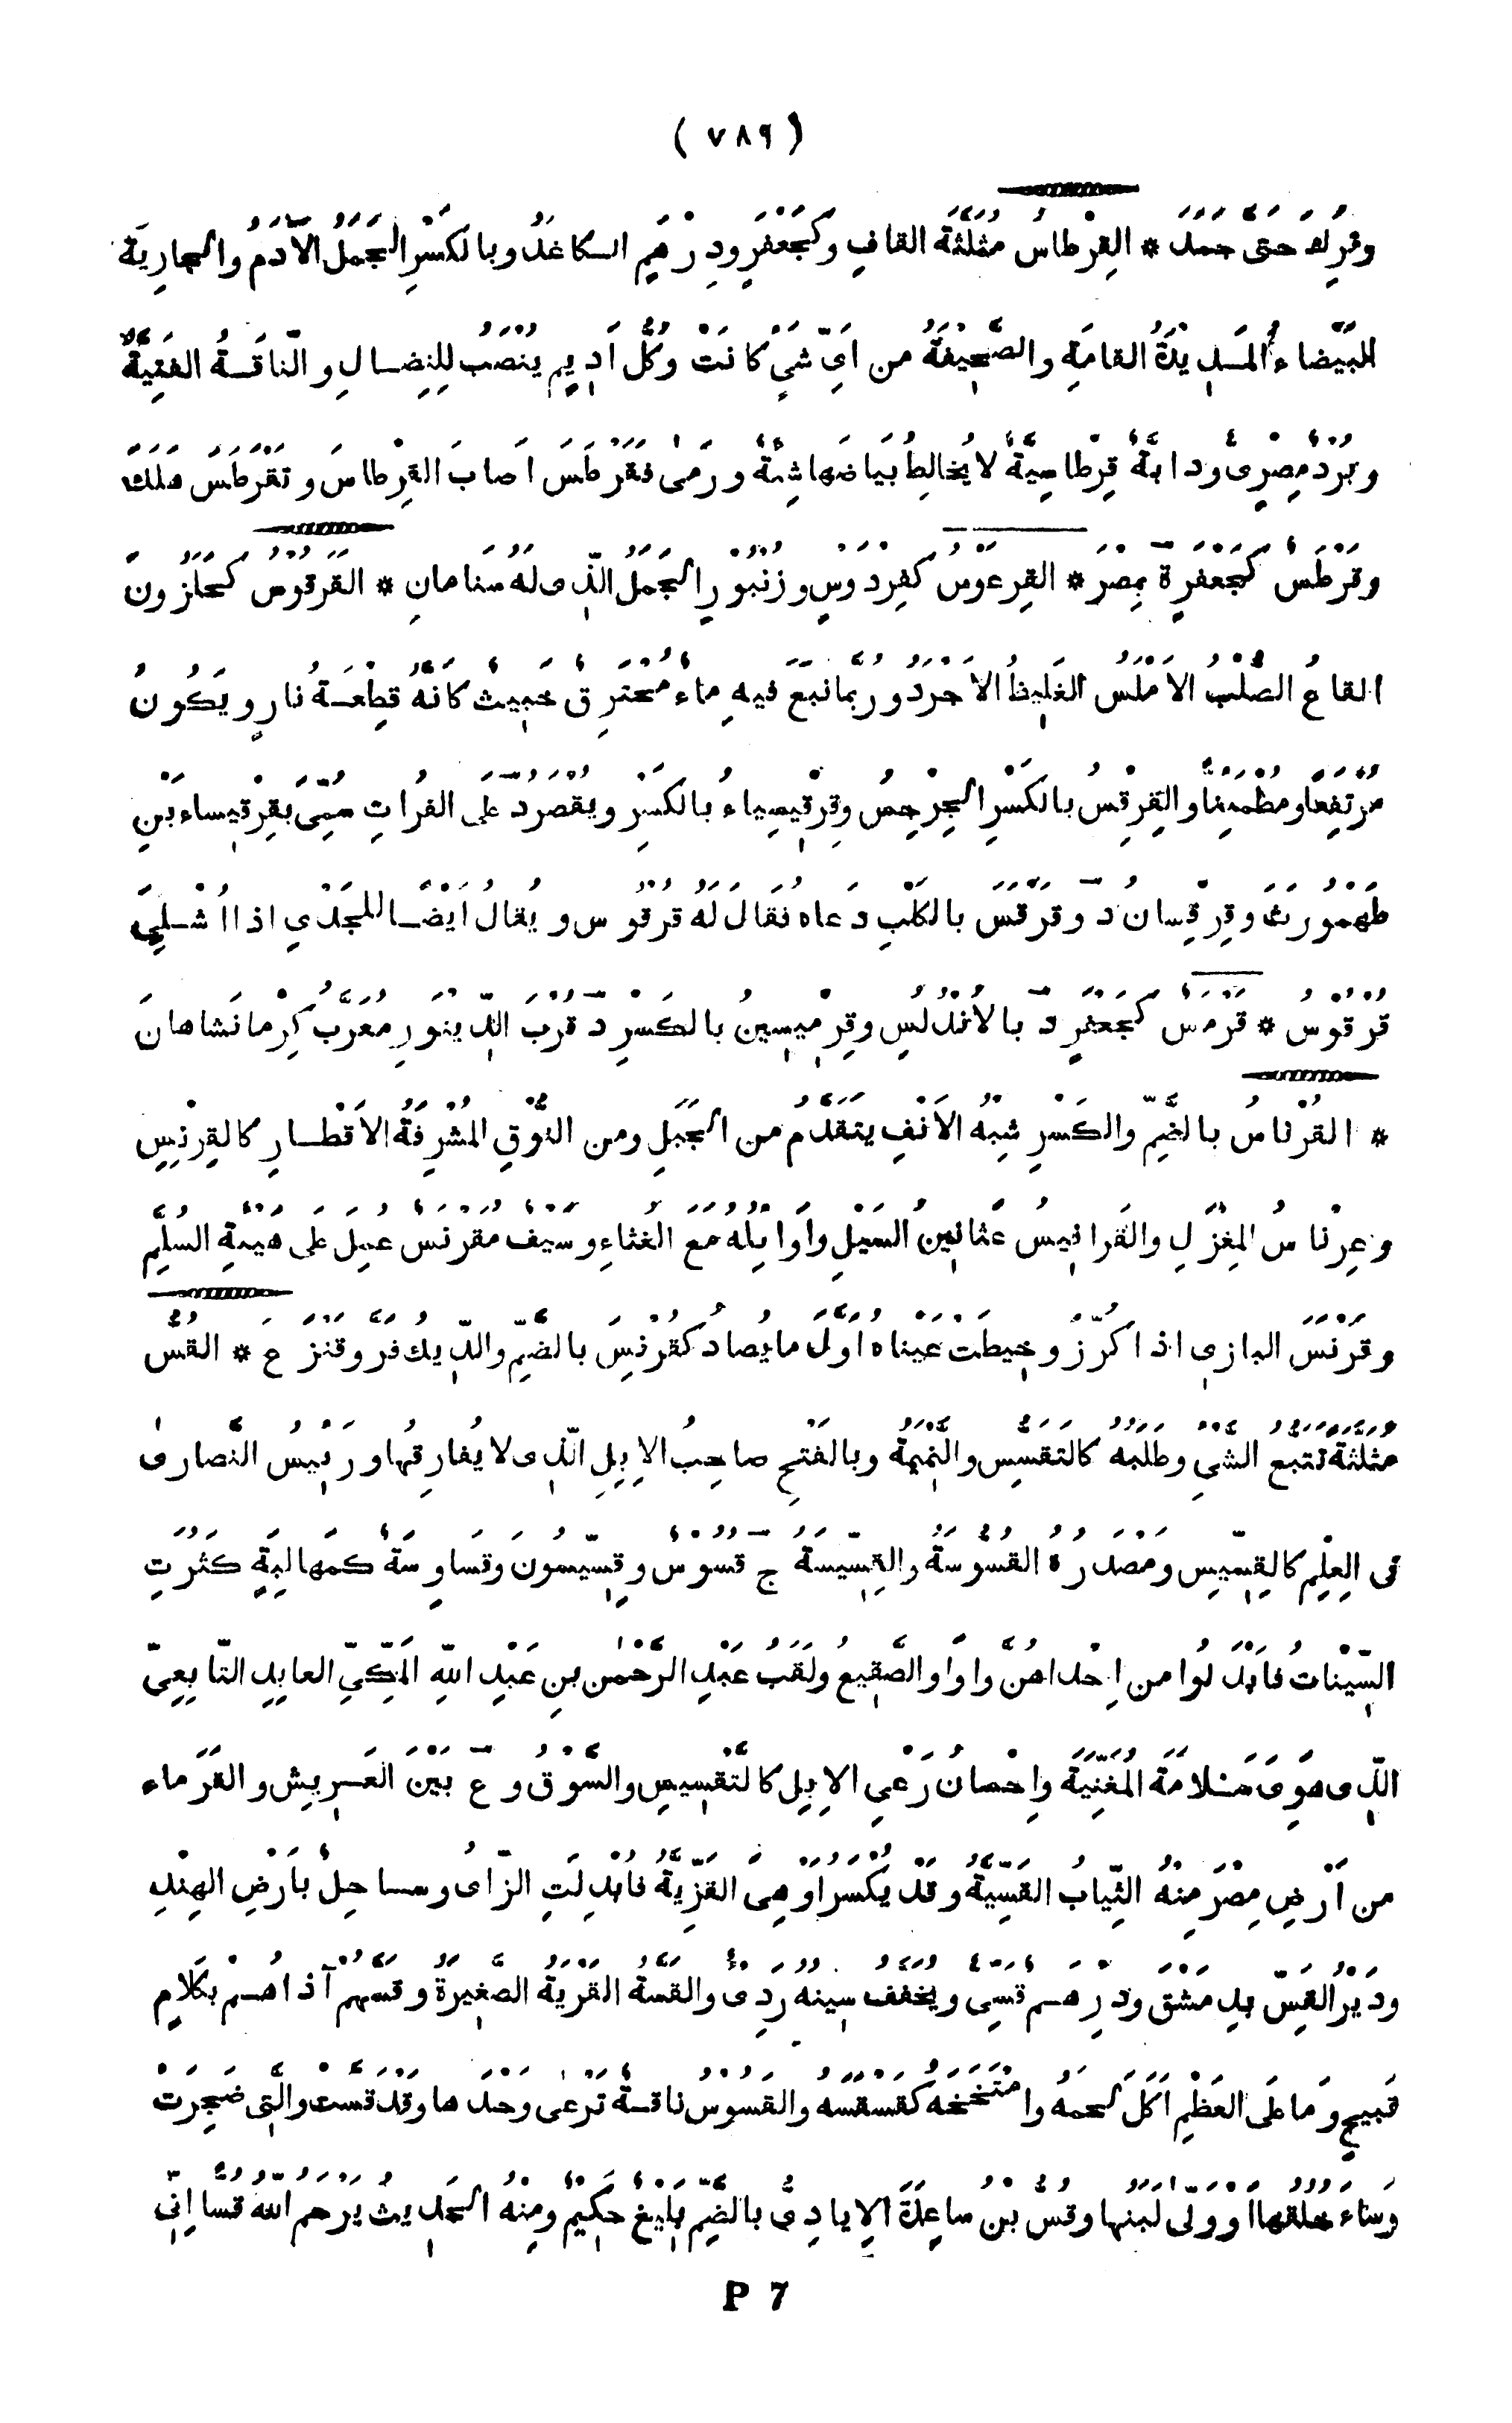 ( ٧٨٩ )
وقُرِكَ حتّى جَمَدَ * القِرْطاسُ مُثَلَّثَةَ القافِ وكَجَعْفَرٍ ودِرْهَمٍ الكاغَدُ وبالكَسْرِ الجَمَلُ الآدَمُ والجاريَةُ
البَيْضاءُ المَديدَةُ القامَةِ والصَّحِيفَةُ من اَيِّ شَيْءٍ كانَتْ وكُلُّ اَديمٍ يُنْصَبُ لِلنِضالِ والنّاقَةُ الفَتِيَّةُ
وبُرْدٌ مِصْرِيٌّ ودابَّةٌ قِرْطاسِيَّةٌ لا يُخالِطُ بَياضَها شِيَةٌ ورَمى فَقَرْطَسَ اَصابَ القِرْطاسَ وتَقَرْطَسَ هَلَكَ
وقَرْطَسُ كَجَعْفَرٍ ة بِمِصْرَ * القِرْعَوْسُ كَفِرْدَوْسٍ وزُنْبُورٍ الجَمَلُ الَّذى لَهُ سَنامانِ * القَرَقُوسُ كَحَلَزُونٍ
القاعُ الصُّلْبُ الاَمْلَسُ الغَلِيظُ الاَجْرَدُ وربما نَبَعَ فيهِ ماءٌ مُحْتَرِقٌ خَبِيثٌ كاَنَّهُ قِطْعَةُ نارٍ ويَكُونُ
مُرْتَفِعًا ومُطْمَئِنًا والقِرْقِسُ بالكَسْرِ الجِرْجِسُ وقِرْقِيسِياءُ بالكَسْرِ ويُقْصَرُ د على الفُراتِ سُمِّىَ بقِرْقيساءَ بْنِ
طَهْمُورَثَ وقِرْقِسانُ د وقَرْقَسَ بالكَلْبِ دَعاهُ فقالَ لَهُ قُرْقُوسْ ويُقالُ اَيْضًا للجَدْيِ اذا اُشْلِيَ
قُرْقُوسْ * قَرْمَسٌ كَجَعْفَرٍ د بالاَنْدُلُسِ وقِرْمِيسِينُ بالكَسْرِ د قُرْبَ الدِّينَوَرِ مُعَرَّبُ كِرْمانَشاهانَ
* القُرْناسُ بالضَّمِّ والكَسْرِ شِبْهُ الاَنْفِ يَتَقَدَّمُ من الجَبَلِ ومن النُّوْقِ المُشْرِفَةُ الاَقْطارِ كالقِرْنِسِ
وعِرْناسُ المِغْزَلِ والقَرانِيسُ عَثانِينُ السَيْلِ واَوائِلُهُ مَعَ الغُثاءِ وسَيْفٌ مُقَرْنَسٌ عُمِلَ على هَيْئَةِ السُلَّمِ
وقَرْنَسَ البازِى اذا كَرَّزَ وخِيطَتْ عَيْناهُ اَوَّلَ ما يُصادُ كقُرْنِسَ بالضَّمِّ والدِّيكُ فَرَّ وقَنْزَعَ * القَسُّ
مُثَلَّثَةً تَتَبُّعُ الشَّيْءِ وطَلَبُهُ كالتَقَسُّسِ والنَّمِيمَةُ وبالفَتْحِ صاحِبُ الاِبِلِ الَّذى لا يُفارِقُها ورَئِيسُ النَّصارى
فى العِلْمِ كالقِسِّيسِ ومَصْدَرُهُ القُسُوسَةُ والقِسِّيسَةُ ج قُسُوسٌ وقِسِّيسُونَ وقَساوِسَةٌ كمَهالِبَةٍ كَثُرَتِ
السِّيْناتُ فاَبْدَلُوا من اِحْداهُنَّ واوًا والصَّقِيعُ ولَقَبُ عَبْدِ الرَّحْمٰنِ بنِ عَبْدِ اللّهِ المَكِّيِّ العابِدِ التّابِعِيِّ
الَّذى هَوِىَ سَلامَةَ المُغَنِّيَةَ واِحْسانُ رَعْيِ الاِبِلِ كالتَّقْسِيسِ والسَّوْقُ وع بَيْنَ العَرِيشِ والفَرَماءِ
من اَرْضِ مِصْرَ مِنْهُ الثِّيابُ القَسِّيَّةُ وقَدْ يُكْسَرُ اَوْ هِىَ القَزِّيَّةُ فاُبْدِلَتِ الزَّاىُ وساحِلٌ بأَرْضِ الهِنْدِ
ودَيْرُ القَسِّ بِدِمَشْقَ ودِرْهَمٌ قَسِيٌّ ويُخَفَّفُ سِينُهُ رَدِيٌّ والقَسَّةُ القَرْيَةُ الصَّغِيرَةُ وقَسَّهُمْ آذاهُمْ بكَلامٍ
قَبِيحٍ وما على العَظْمِ اَكَلَ لَحْمَهُ وامْتَخَّخَهُ كقَسْقَسَهُ والقَسُوسُ ناقَةٌ تَرْعى وَحْدَها وقَدْ قَسَّتْ والَّتِى ضَجِرَتْ
وَساءَ خُلُقُها اَوْ وَلّى لَبَنُها وقُسُّ بْنُ ساعِدَةَ الاِيادِىُّ بالضَّمِّ بَلِيْغٌ حَكِيمٌ ومِنْهُ الحَدِيثُ يَرْحَمُ اللّهُ قُسًّا اِنِّي
P 7